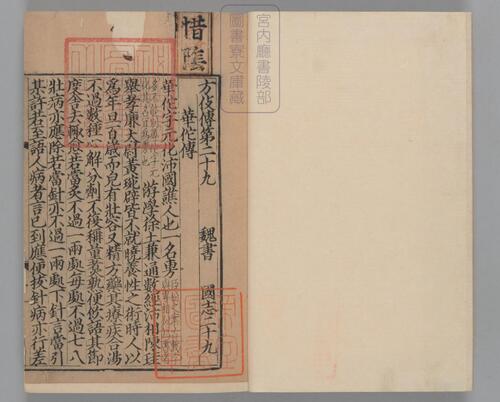 惜陰
宮內廳書陵部
圖書寮文庫藏
方伎傳第二十九 魏書 國志二十九
華佗傳
華佗字元化沛國譙人也一名旉
游學徐土兼通數經沛相陳珪
舉孝廉太尉黃琬辟皆不就曉養性之術時人以
為年且百歲而皃有壯容又精方藥其療疾合湯
不過數種心解分劑不復稱量煮熟便飲語其節
度舍去輒愈若當灸不過一兩處每處不過七八
壯病亦應除若當針亦不過一兩處下針言當引
某許若至語人病者言已到應便拔針病亦行差